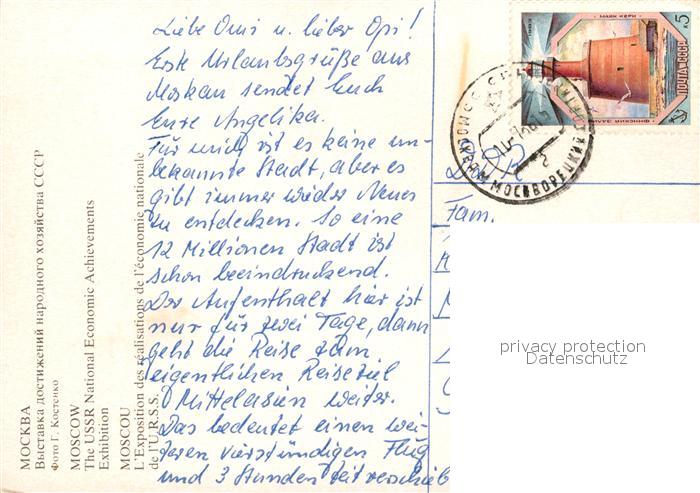 Liebe Omi u. lieber Opi!
Erste Urlaubsgrüße aus
Moskau sendet Euch
Eure Angelika.
Für mich ist es keine un-
bekannte Stadt, aber es
gibt immer wieder Neues
zu entdecken. So eine
12 Millionen Stadt ist
schon beeindruckend.
Der Aufenthalt hier ist
nur für zwei Tage, dann
geht die Reise zum
eigentlichen Reiseziel
Mittelasien weiter.
Das bedeutet einen wei-
teren vierstündigen Flug
und 3 Stunden Zeitverschieb
DDR
Fam.
МОСКВА
Выставка достижений народного хозяйства СССР
Фото Г. Костенко
MOSCOW
The USSR National Economic Achievements
Exhibition
MOSCOU
L'Exposition des réalisations de l'économie nationale
de l'U.R.S.S.
МАЯК КЕРИ
1983
5к
ПОЧТА СССР
ФИНСКИЙ ЗАЛИВ
МОСКВОРЕЦКИЙ
privacy protection
Datenschutz